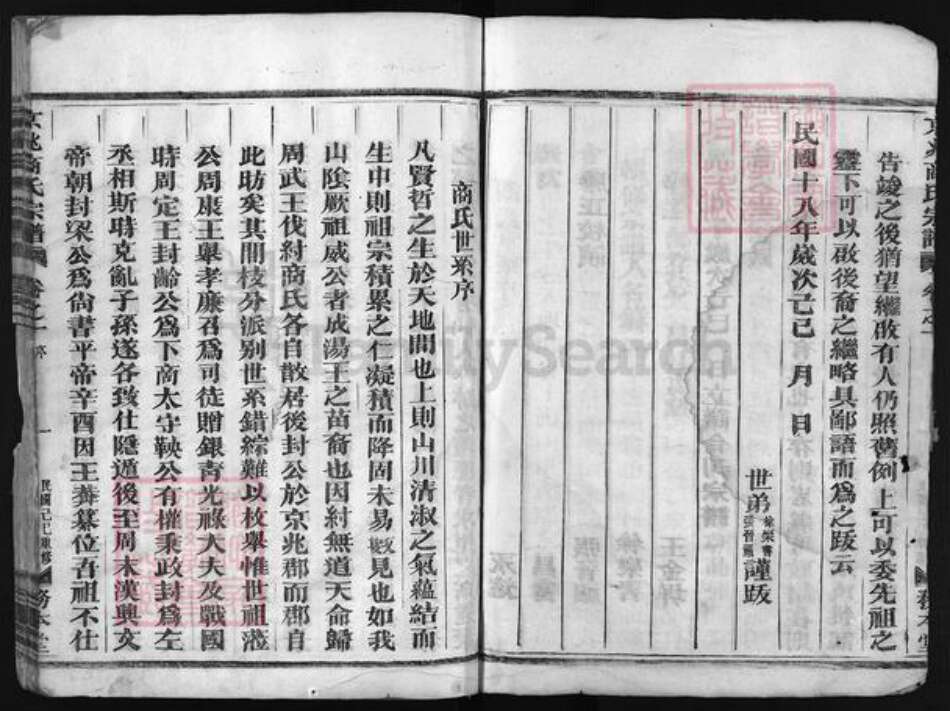 告竣之後猶望繼啟有人仍照舊例上可以委先祖之
靈下可以啟後裔之繼略具鄙語而為之跋云
民國十八年歲次己巳 月 日
世弟 徐榮書 張晉 謹跋
商氏世系序
凡賢哲之生於天地間也上則山川清淑之氣蘊結而
生中則祖宗積累之仁凝積而降固未易數見也如我
山陰厥祖威公者成湯王之苗裔也因紂無道天命歸
周武王伐紂商氏各自散居後封公於京兆郡而郡自
此昉矣其開枝分派別世系錯綜難以枚舉惟世祖
公周康王舉孝廉召為司徒贈銀青光祿大夫及戰國
時周定王封齡公為下商太守鞅公有權秉政封為左
丞相斯時克亂子孫遂各致仕隱遁後至周末漢興文
帝朝封梁公為尚書平帝辛酉因王莽篡位吾祖不仕
京兆商氏宗譜 卷之一 序 一 民國己巳重修 務本堂
京兆商氏宗譜 卷之一 務本堂
FamilySearch